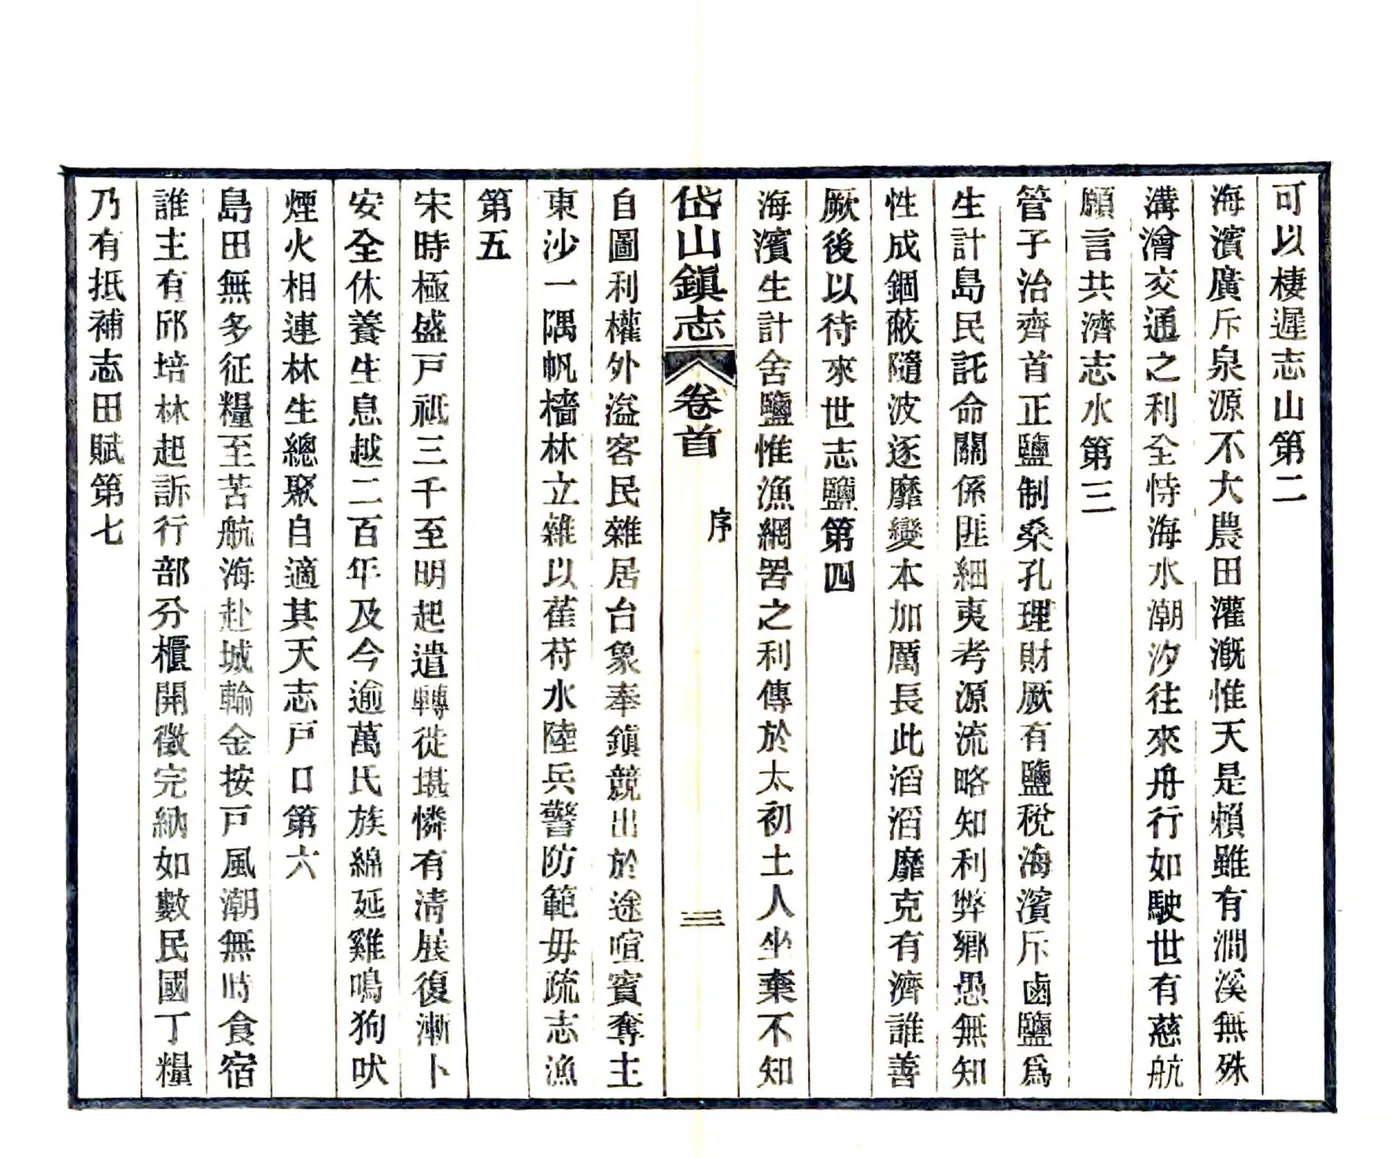 可以棲遲志山第二
海濱廣斥泉源不大農田灌漑惟天是賴雖有澗溪無殊
溝澮交通之利全恃海水潮汐往來舟行如駛世有慈航
願言共濟志水第三
管子治齊首正鹽制桑孔理財厥有鹽稅海濱斥鹵鹽爲
生計島民託命關係匪細夷考源流略知利弊鄉愚無知
性成錮蔽隨波逐靡變本加厲長此滔滔靡克有濟誰善
厥後以待來世志鹽第四
海濱生計舍鹽惟漁網罟之利傳於太初土人坐棄不知
岱山鎮志 卷首 序 三
自圖利權外溢客民雜居台象奉鎭競出於途喧賓奪主
東沙一隅帆檣林立雜以萑苻水陸兵警防範毋疏志漁
第五
宋時極盛戸祗三千至明起遣轉徙堪憐有淸展復漸卜
安全休養生息越二百年及今逾萬氏族綿延雞鳴狗吠
煙火相連林生總聚自適其天志戸口第六
島田無多征糧至苦航海赴城輸金按戸風潮無時食宿
誰主有邱培林起訴行部分櫃開徵完納如數民國丁糧
乃有抵補志田賦第七